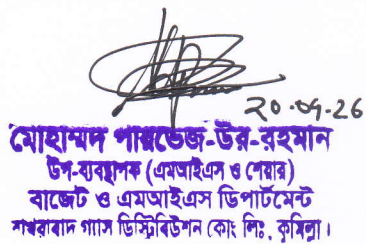 ২০-০৭-26
মোহাম্মদ পারভেজ-উর-রহমান
উপ-ব্যবস্থাপক (এমআইএস ও শেয়ার)
বাজেট ও এমআইএস ডিপার্টমেন্ট
বাখরাবাদ গ্যাস ডিস্ট্রিবিউশন কোং লিঃ, কুমিল্লা।